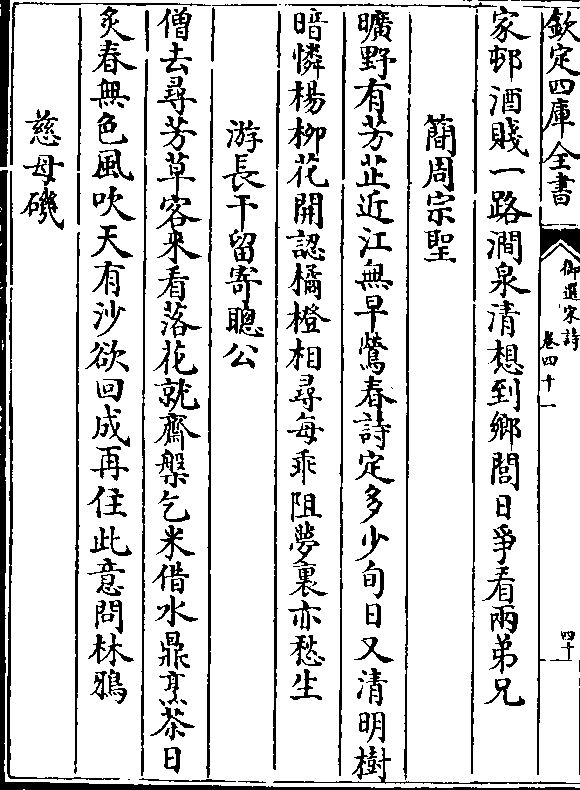 欽定四庫全書
御選宋詩
卷四十一
四十
家邨酒賤一路澗泉清想到鄉閭日爭看兩弟兄
簡周宗聖
曠野有芳芷近江無早鶯春詩定多少旬日又清明樹
暗憐楊柳花開認橘橙相尋每乖阻夢裏亦愁生
游長干留寄聰公
僧去尋芳草客來看落花就齋槃乞米借水鼎烹茶日
炙春無色風吹天有沙欲回成再住此意問林鴉
慈母磯